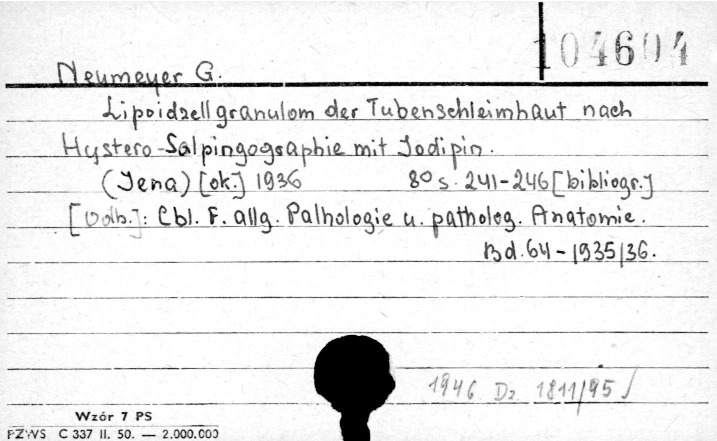 104604
Neumeyer G.
Lipoidzellgranulom der Tubenschleimhaut nach
Hystero-Salpingographie mit Jodipin.
(Jena) [ok.] 1936 8° s. 241-246 [bibliogr.]
[Odb.]: Cbl. F. allg. Pathologie u. patholog. Anatomie.
Bd. 64 - 1935/36.
1946 Dz 1811/95
Wzór 7 PS
PZWS C 337 II. 50. — 2.000.000